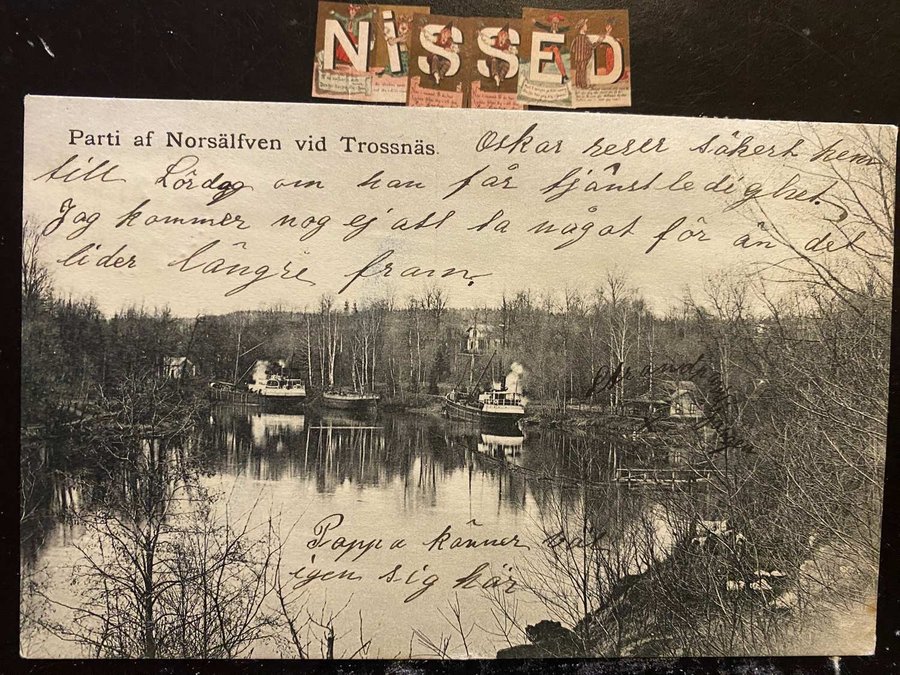 NiSSED
Parti af Norsälfven vid Trossnäs.
Oskar reser säkert hem
till Lördag om han får tjänstledighet.
Jag kommer nog ej att ta något för än det
lider längre fram.
Pappa känner väl
igen sig här